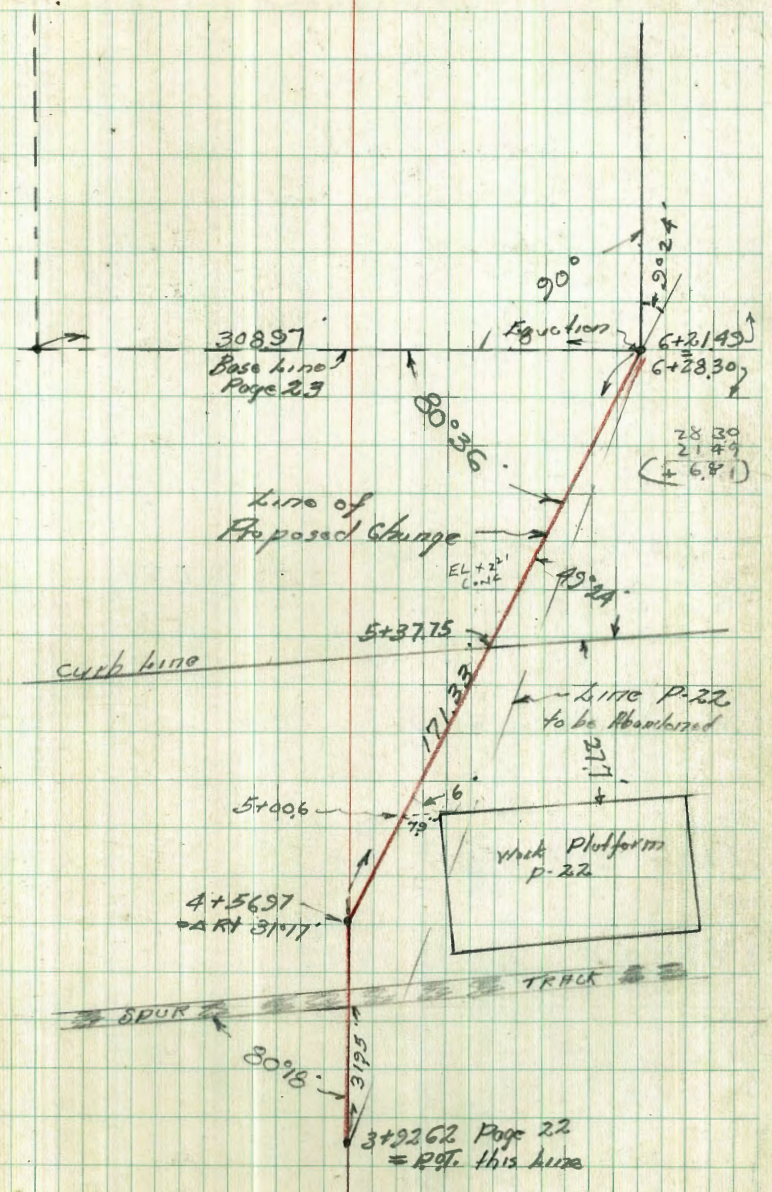 90°
9°24'
308.97
Base Line
Page 23
Equation
6+21.49
=
6+28.30
28 30
21 49
(+ 6.81)
80°36'
Line of
Proposed Change
49°24'
5+37.75
Curb Line
171.33
Line P-22
to be Abandoned
27.7'
5+00.6
6'
7.9'
Work Platform
P-22
4+56.97
Rt 31°17'
SPUR TRACK
80°18'
31.95'
3+92.62 Page 22
= P.O.T. this Line